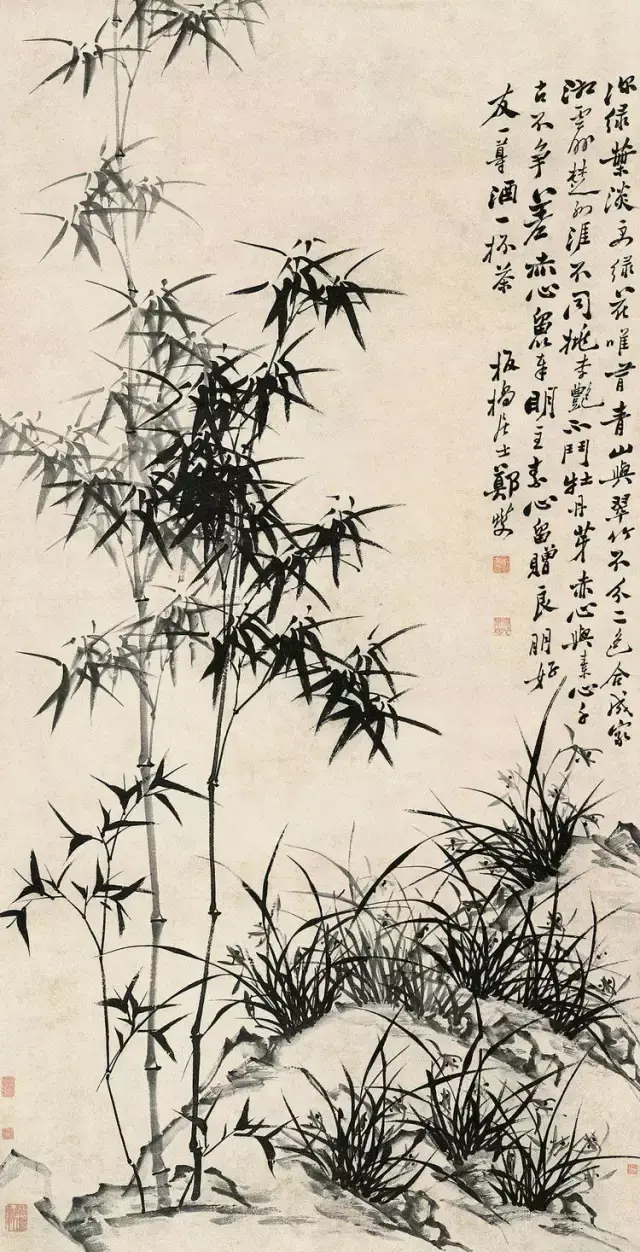 深綠葉淡綠花唯青山與翠竹不分二色合成家
湘雲外楚江涯不同桃李艷不鬥牡丹芽赤心與素心千
古不爭差赤心留奉明主素心留贈良朋好
友一尊酒一杯茶 板橋居士鄭燮